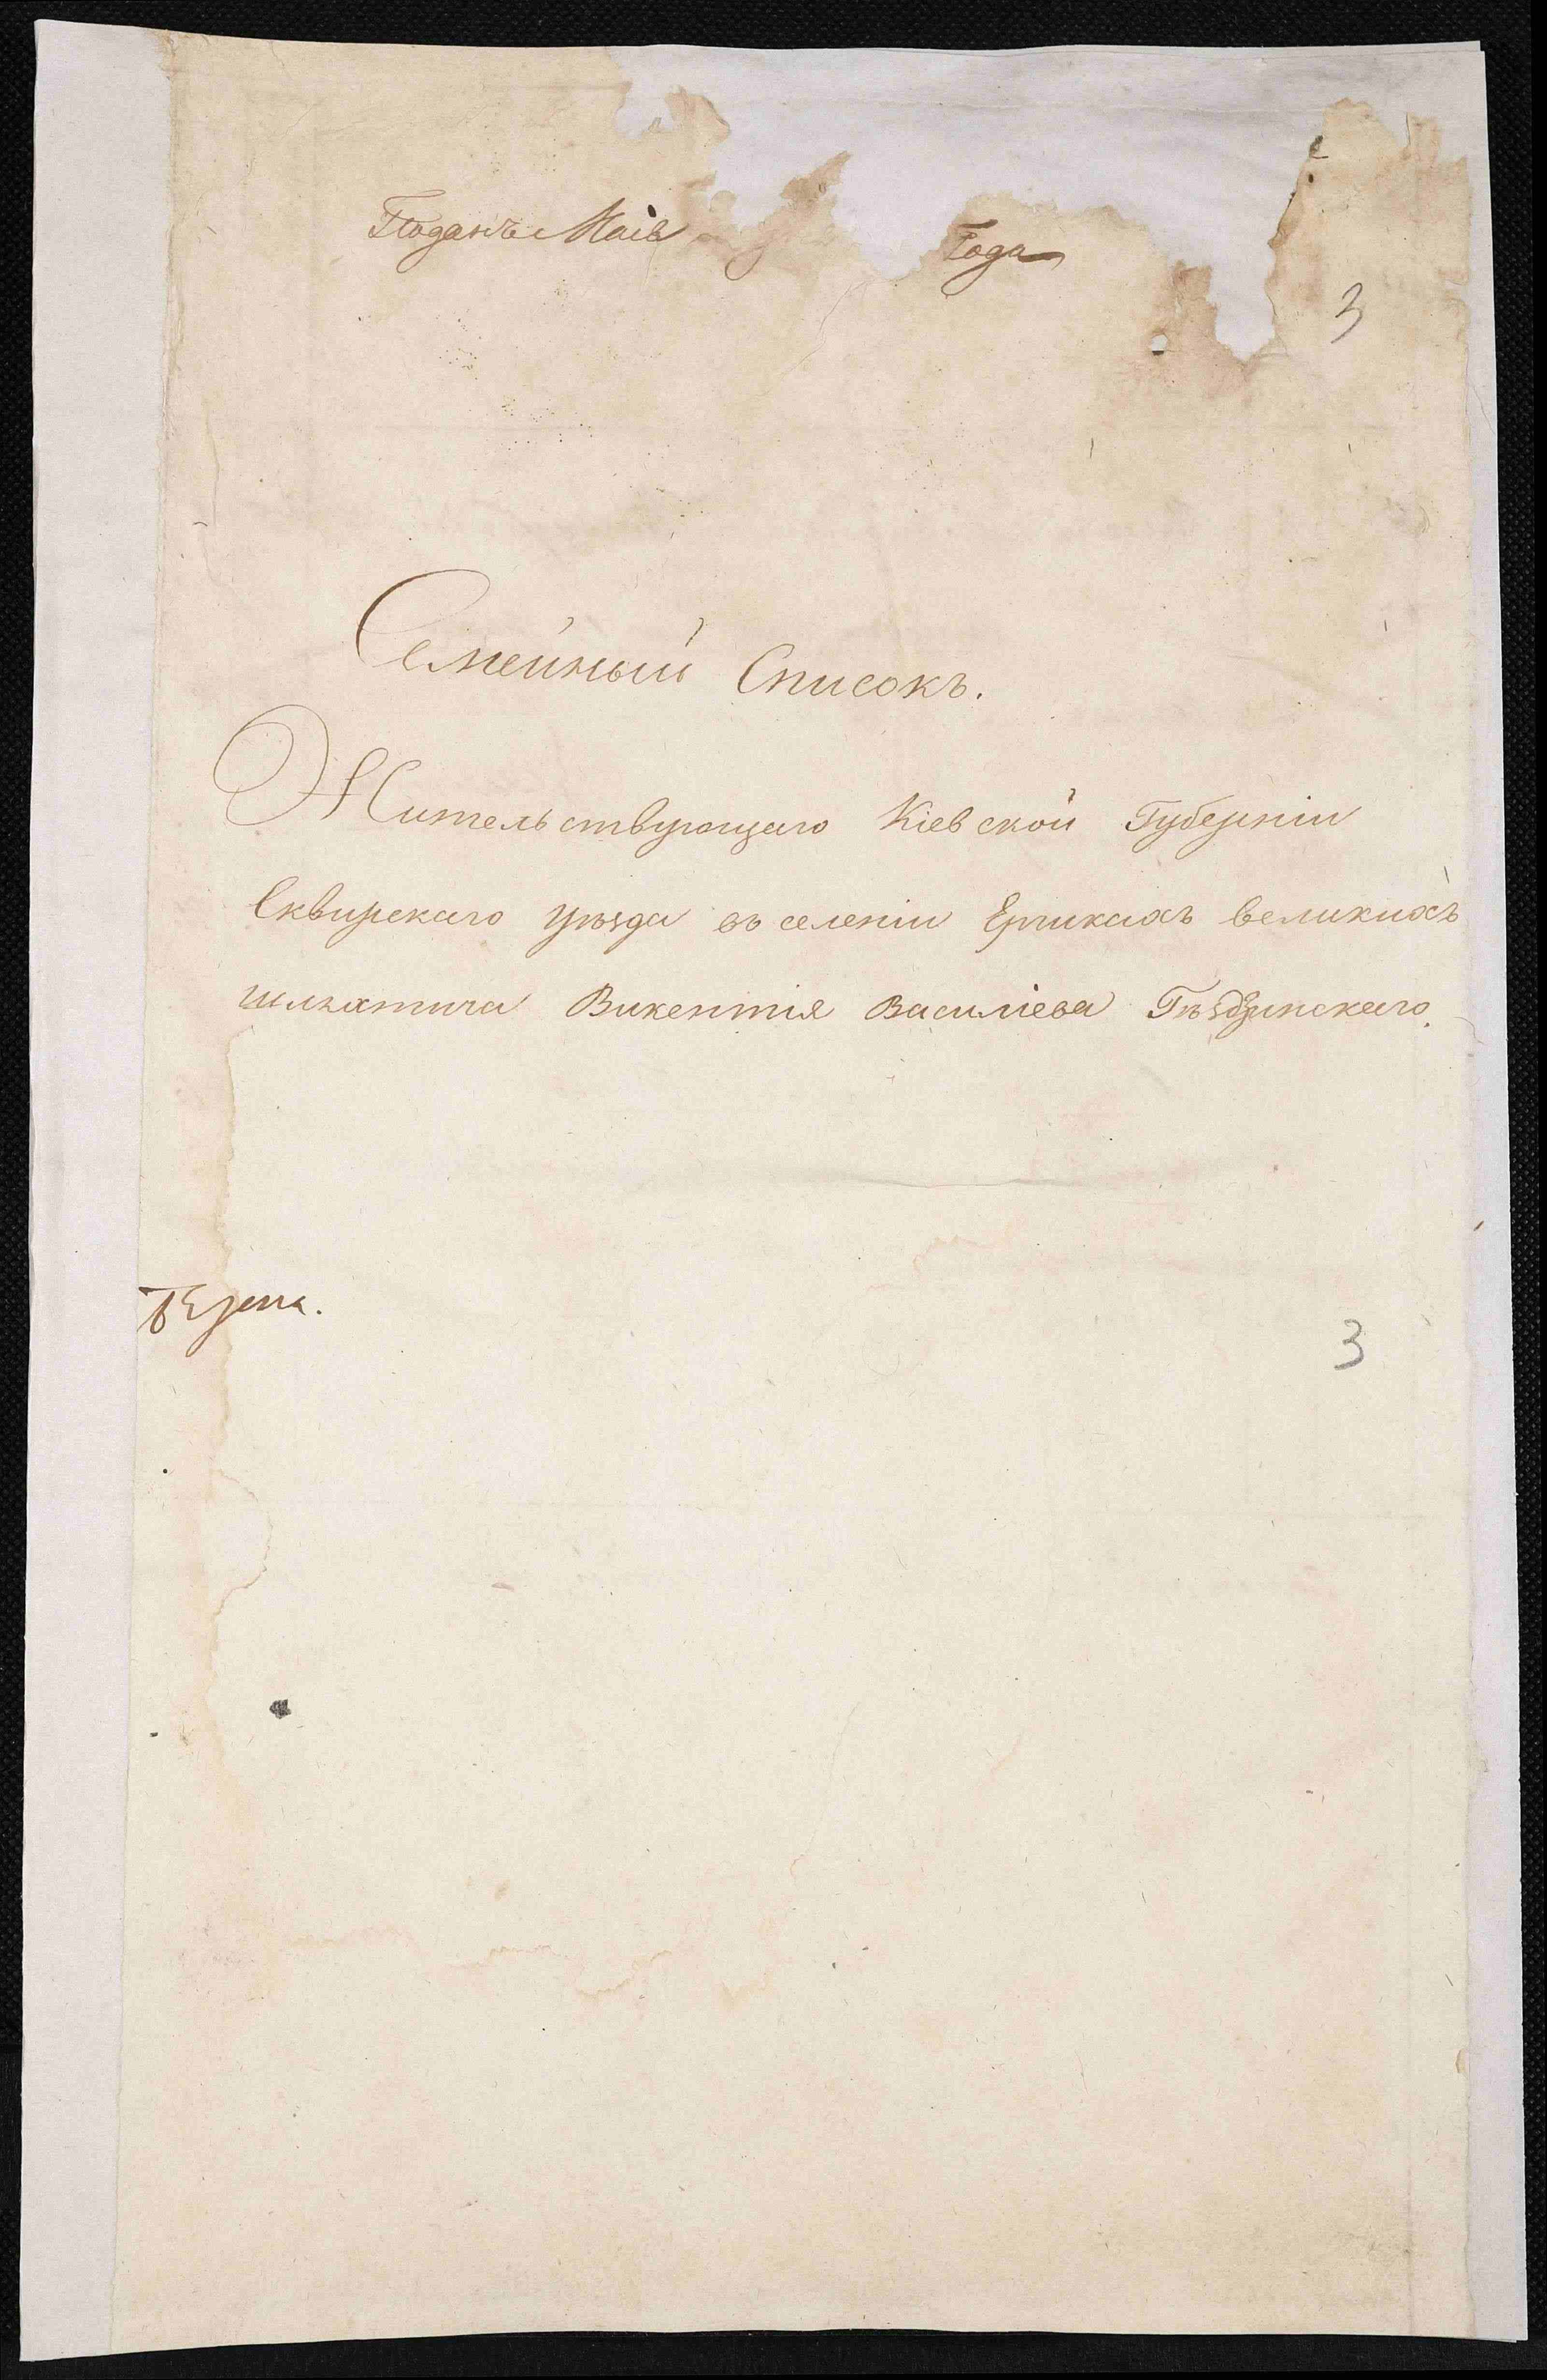 Поданъ Маiя Года
3
Семейный Списокъ.
Жительствующаго Кіевской Губерніи
Сквирскаго уѣзда въ селеніи Ерчикахъ великихъ
шляхтича Викентія Василіева Гнѣздзинскаго.
3